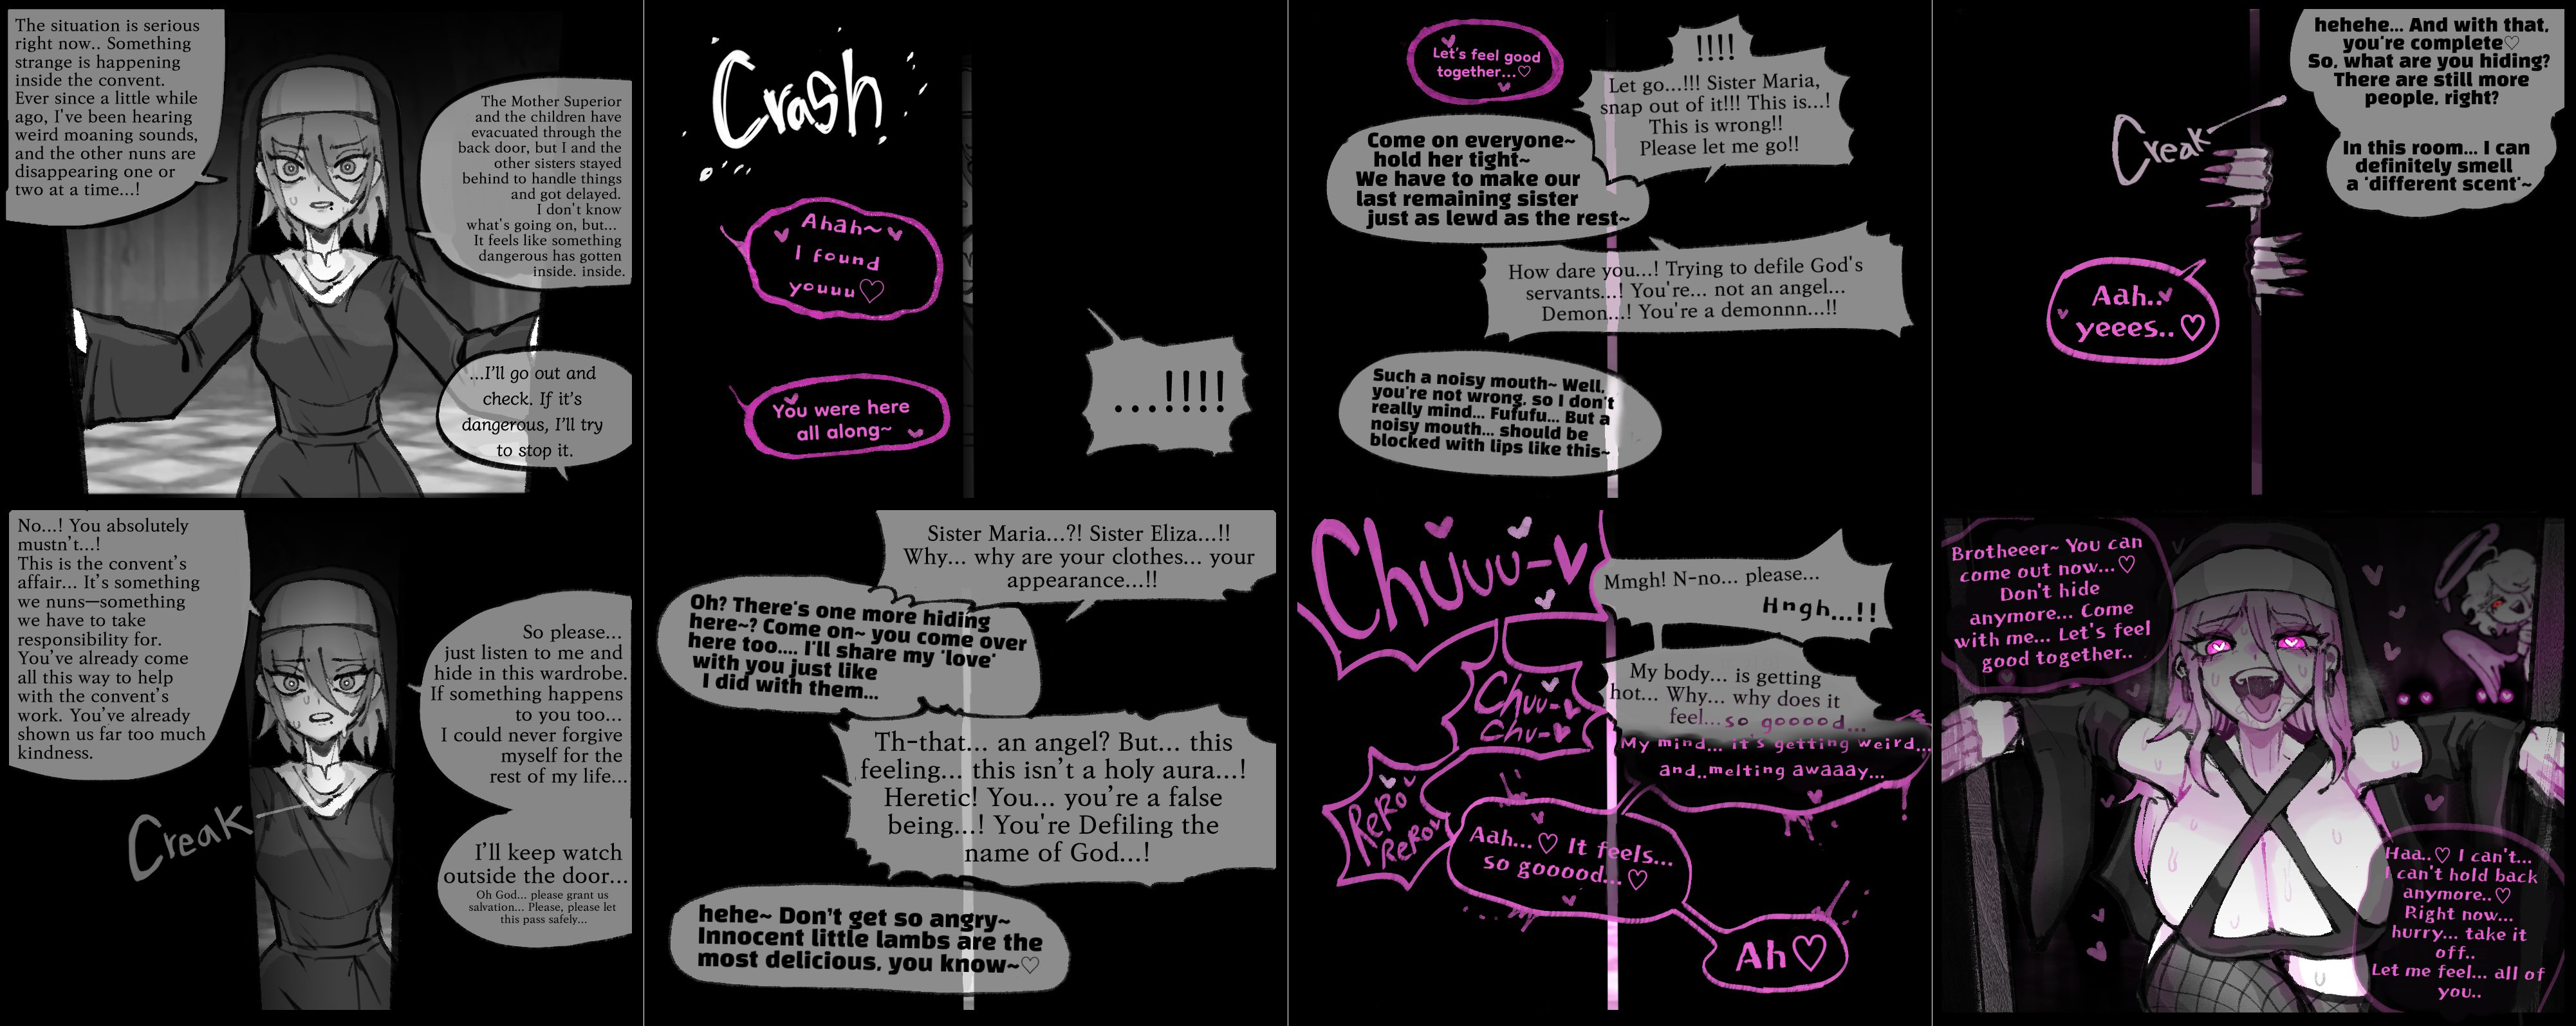 The situation is serious
right now.. Something
strange is happening
inside the convent.
Ever since a little while
ago, I've been hearing
weird moaning sounds,
and the other nuns are
disappearing one or
two at a time...!
The Mother Superior
and the children have
evacuated through the
back door, but I and the
other sisters stayed
behind to handle things
and got delayed.
I don't know
what's going on, but...
It feels like something
dangerous has gotten
inside. inside.
...I'll go out and
check. If it's
dangerous, I'll try
to stop it.
No...! You absolutely
mustn't...!
This is the convent's
affair... It's something
we nuns—something
we have to take
responsibility for.
You've already come
all this way to help
with the convent's
work. You've already
shown us far too much
kindness.
So please...
just listen to me and
hide in this wardrobe.
If something happens
to you too...
I could never forgive
myself for the
rest of my life...
Creak
I'll keep watch
outside the door...
Oh God... please grant us
salvation... Please, please let
this pass safely...
Crash
Ahah~
I found
youuu♡
You were here
all along~
...!!!!
Sister Maria...?! Sister Eliza...!!
Why... why are your clothes... your
appearance...!!
Oh? There's one more hiding
here~? Come on~ you come over
here too.... I'll share my 'love'
with you just like
I did with them...
Th-that... an angel? But... this
feeling... this isn't a holy aura...!
Heretic! You... you're a false
being...! You're Defiling the
name of God...!
hehe~ Don't get so angry~
Innocent little lambs are the
most delicious, you know~♡
Let's feel good
together...♡
!!!!
Let go...!!! Sister Maria,
snap out of it!!! This is...!
This is wrong!!
Please let me go!!
Come on everyone~
hold her tight~
We have to make our
last remaining sister
just as lewd as the rest~
How dare you...! Trying to defile God's
servants...! You're... not an angel...
Demon...! You're a demonnn...!!
Such a noisy mouth~ Well,
you're not wrong, so I don't
really mind... Fufufu... But a
noisy mouth... should be
blocked with lips like this~
Chuuu-♥
Mmgh! N-no... please...
Hngh...!!
Chuu-♥
Chu-♥
My body... is getting
hot... Why... why does it
feel...so gooood...
My mind... it's getting weird...
and..melting awaaay...
ReRo
ReRo
Aah...♡ It feels...
so gooood...♡
Ah♡
hehehe... And with that,
you're complete♡
So, what are you hiding?
There are still more
people, right?
In this room... I can
definitely smell
a 'different scent'~
Creak
Aah..♥
yeees..♡
Brotheeer~ You can
come out now...♡
Don't hide
anymore... Come
with me... Let's feel
good together..
Haa..♡ I can't...
I can't hold back
anymore..♡
Right now...
hurry... take it
off..
Let me feel... all of
you..